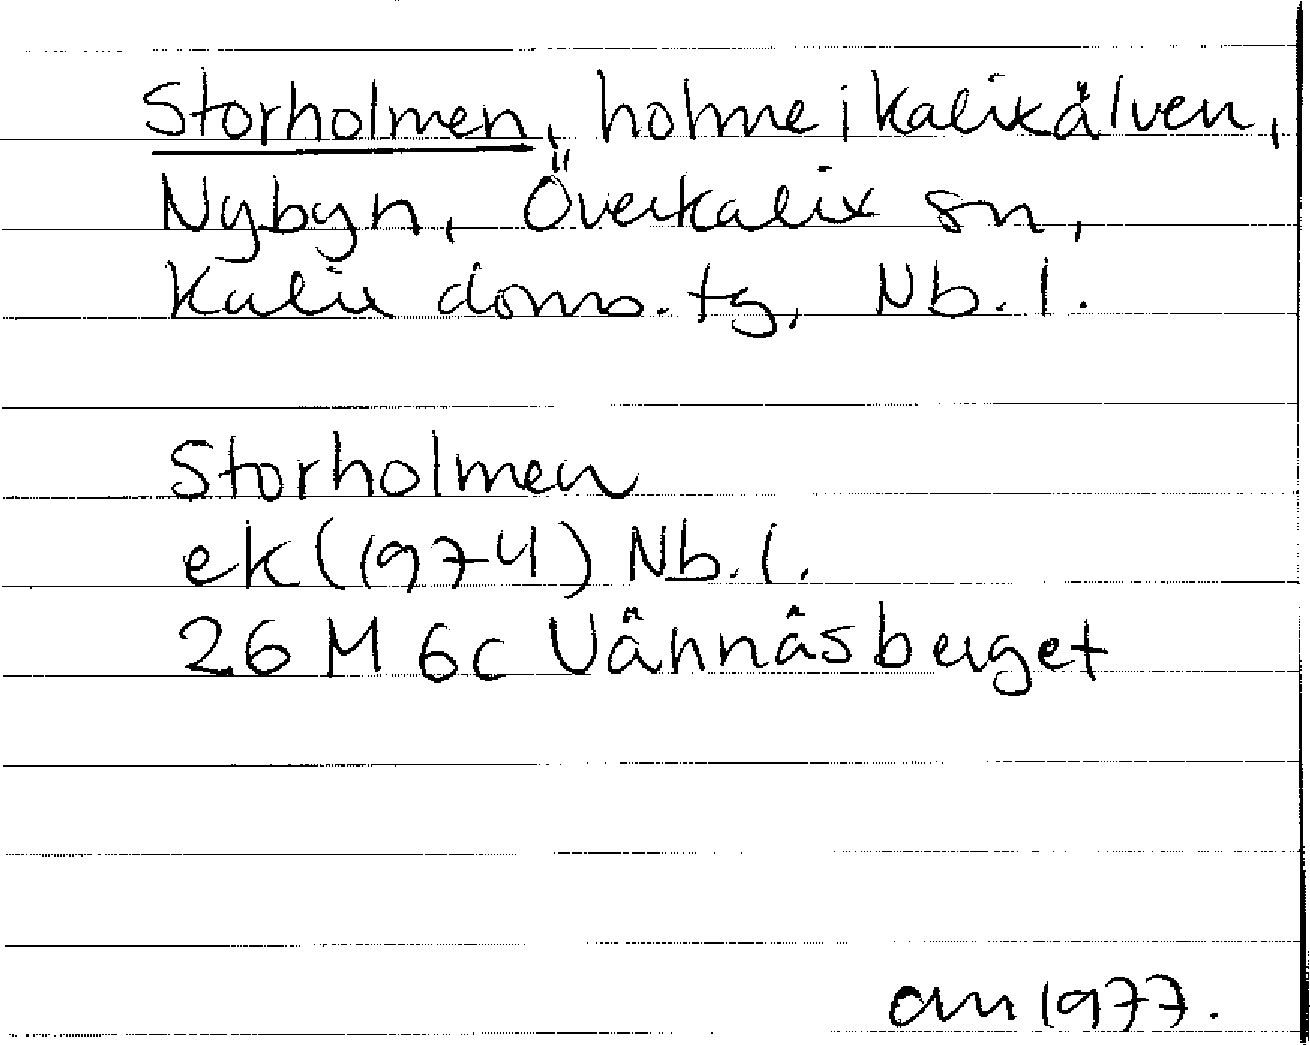 Storholmen, holme i Kalixälven,
Nybyn, Överkalix sn,
Kalix doms. tg, Nb. l.
Storholmen
ek (1974) Nb. l.
26 M 6c Vännäsberget
am 1977.